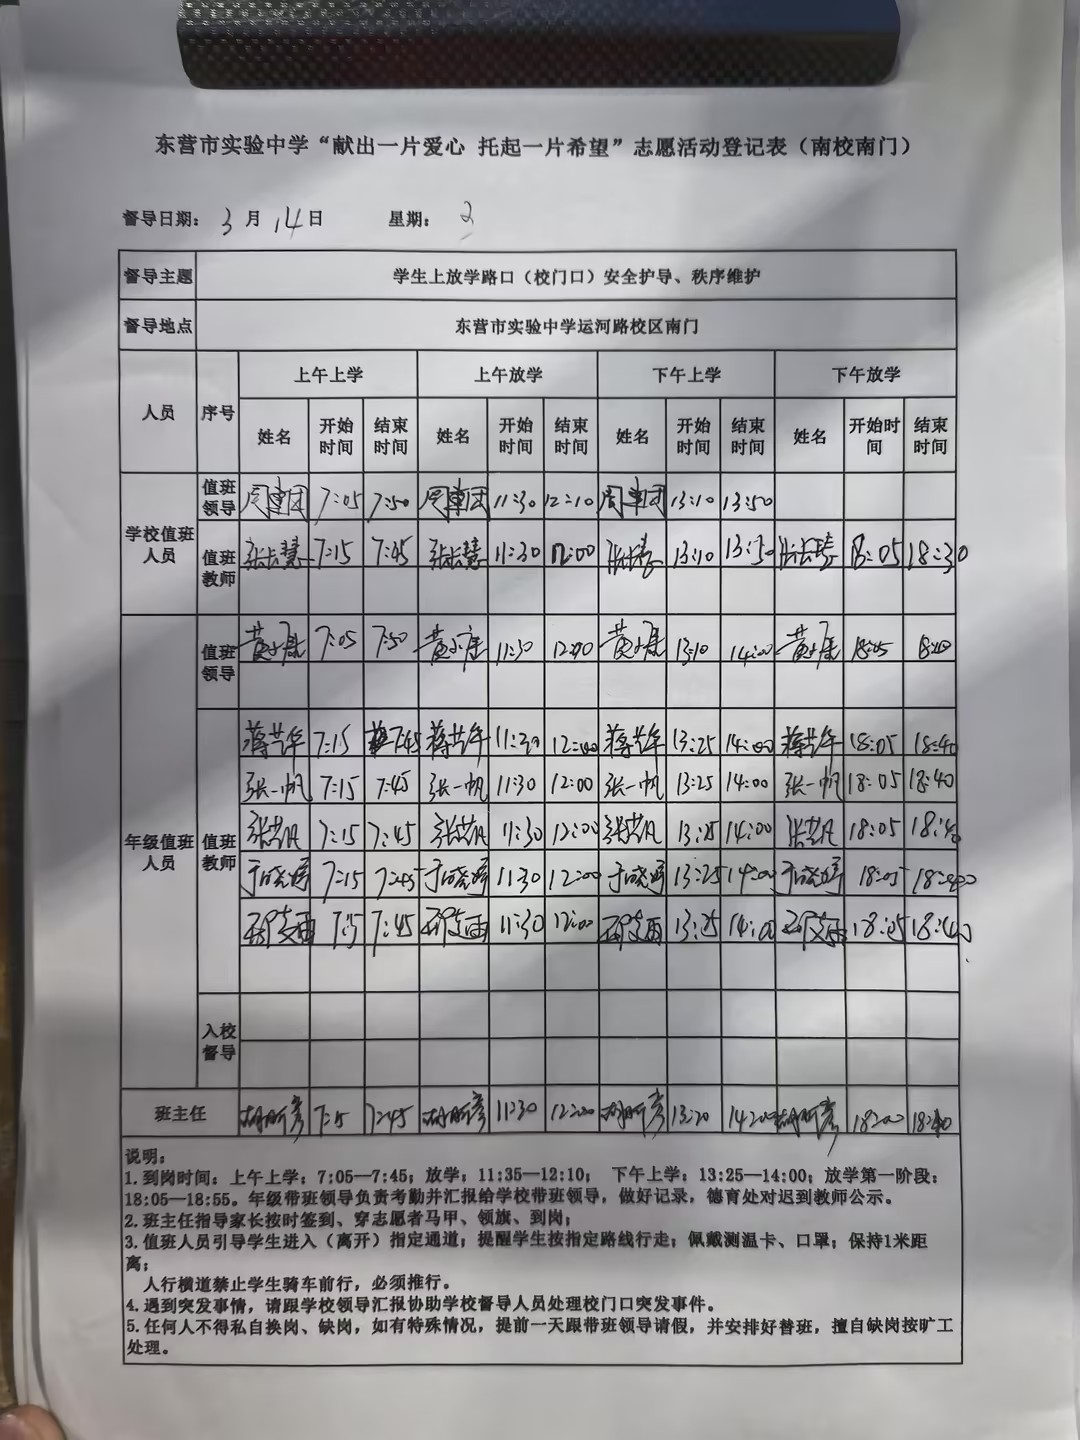 东营市实验中学“献出一片爱心 托起一片希望”志愿活动登记表（南校南门）
督导日期： 3 月 14 日 星期： 2
督导主题 学生上放学路口（校门口）安全护导、秩序维护
督导地点 东营市实验中学运河路校区南门
人员 序号 上午上学 上午放学 下午上学 下午放学
姓名 开始时间 结束时间 姓名 开始时间 结束时间 姓名 开始时间 结束时间 姓名 开始时间 结束时间
学校值班人员 值班领导 7:05 7:50 11:30 12:10 13:10 13:50
值班教师 张长慧 7:15 7:45 张长慧 11:30 12:00 张长慧 13:10 13:30 张长慧 18:05 18:30
年级值班人员 值班领导 7:05 7:50 11:30 13:10 14:00 18:05
值班教师 7:15 7:45 11:30 12:00 13:25 14:00 18:05 18:40
张一帆 7:15 7:45 张一帆 11:30 12:00 张一帆 13:25 14:00 张一帆 18:05 18:40
7:15 7:45 11:30 12:00 13:25 14:00 18:05 18:40
于晓婷 7:15 7:45 于晓婷 11:30 12:00 于晓婷 13:25 14:00 于晓婷 18:05 18:40
7:15 7:45 11:30 12:00 13:25 14:00 18:05 18:40
入校督导
班主任 7:15 7:45 11:30 13:20 18:00
说明：
1.到岗时间：上午上学：7:05—7:45；放学：11:35—12:10； 下午上学：13:25—14:00；放学第一阶段：
18:05—18:55。年级带班领导负责考勤并汇报给学校带班领导，做好记录，德育处对迟到教师公示。
2.班主任指导家长按时签到、穿志愿者马甲、领旗、到岗；
3.值班人员引导学生进入（离开）指定通道；提醒学生按指定路线行走；佩戴测温卡、口罩；保持1米距
离；
人行横道禁止学生骑车前行，必须推行。
4.遇到突发事情，请跟学校领导汇报协助学校督导人员处理校门口突发事件。
5.任何人不得私自换岗、缺岗，如有特殊情况，提前一天跟带班领导请假，并安排好替班，擅自缺岗按旷工
处理。